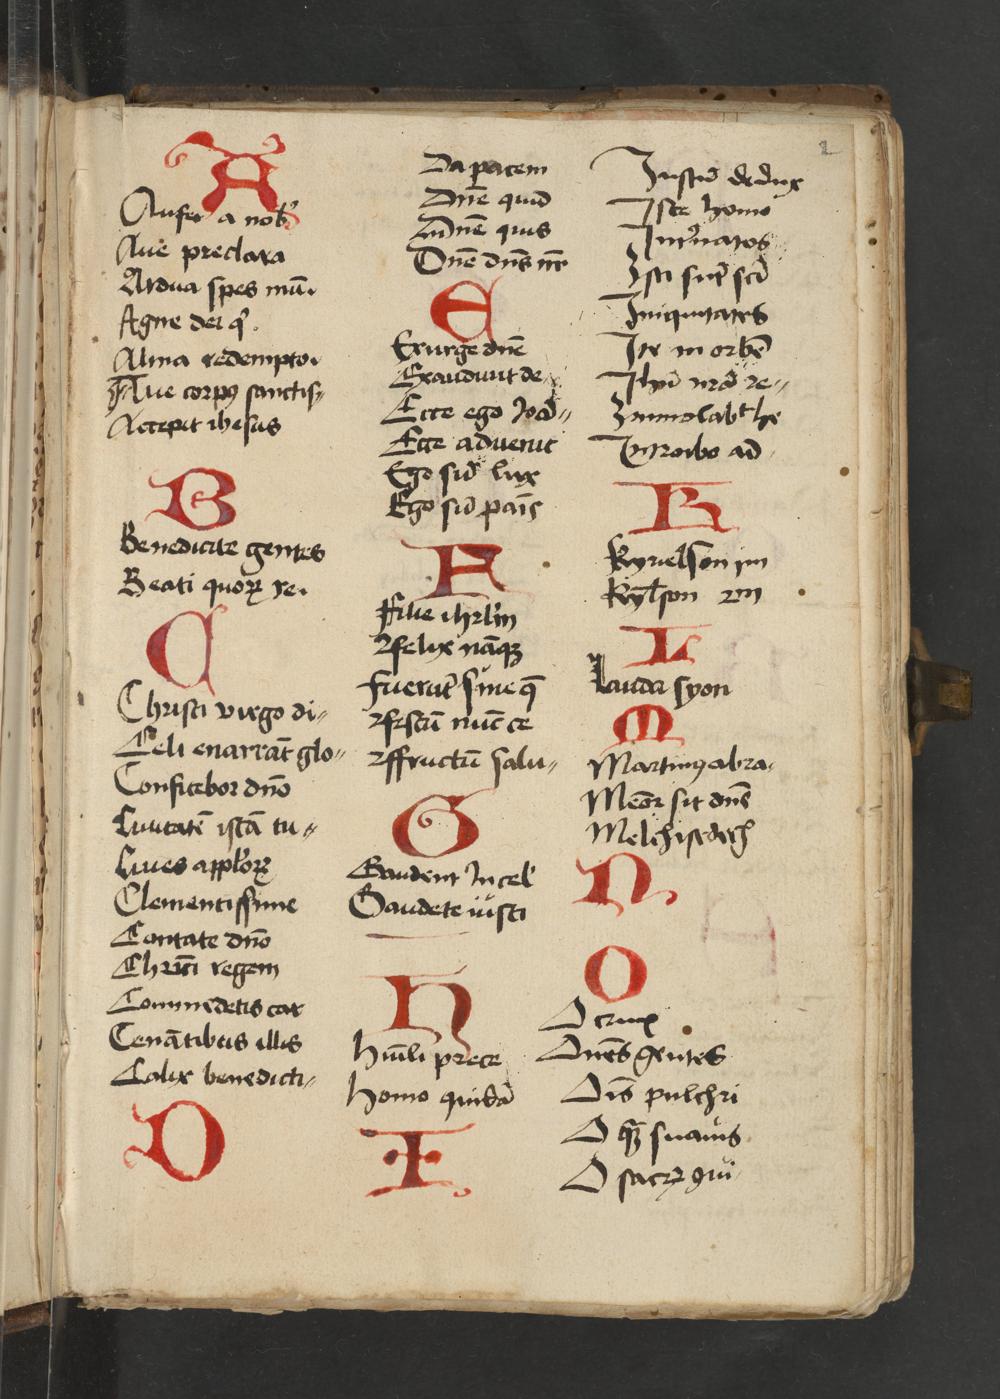 2
A
Aufer a nob̄
Aue preclara
Ardua spes mūi
Agne dei q̄
Alma redemptor
Aue corpꝯ sanctis〃
Accepit ihesus
B
Benedicite gentes
Beati quorꝝ re.
C
Christi virgo di〃
Celi enarrāt glo〃
Confitebor dn̄o
Ciuitatē istā tu〃
Ciues appl̄orꝝ
Clementissime
Cantate dn̄o
Chrīsti regem
Commedetis car
Cenātibus illis
Calix benedicti〃
D
Da pacem
Dn̄e quid
Dn̄e quis
Dn̄e dn̄s nr̄
E
Exurge dn̄e
Exaudiuit de
Ecce ego Joā〃
Ecce aduenit
Ego sū lux
Ego sū pānis
F
Filie ihrl̄m
felix nāqꝫ
fuerūt sine q̄
festū nūc ce
ffructū salu〃
G
Gaudent In cel̄
Gaudete iusti
H
Hūili prece
Homo quidā
I
Justū dedux
Iste homo
Int̄ natos
Isti sūt sc̄i
Iniquitates
Ite in orbē
Ihū nr̄ā re〃
Immolab̄t he
Introibo ad
K
Kyrieleson ȷm
Kyrl̄son 2m
L
Lauda syon
M
Martinꝯ abra
Meōr sit dn̄e
Melchisedech
N
O
O crux
Om̄es gentes
Om̄s pulchri
O qꝫ suauis
O sacrꝝ ꝯui